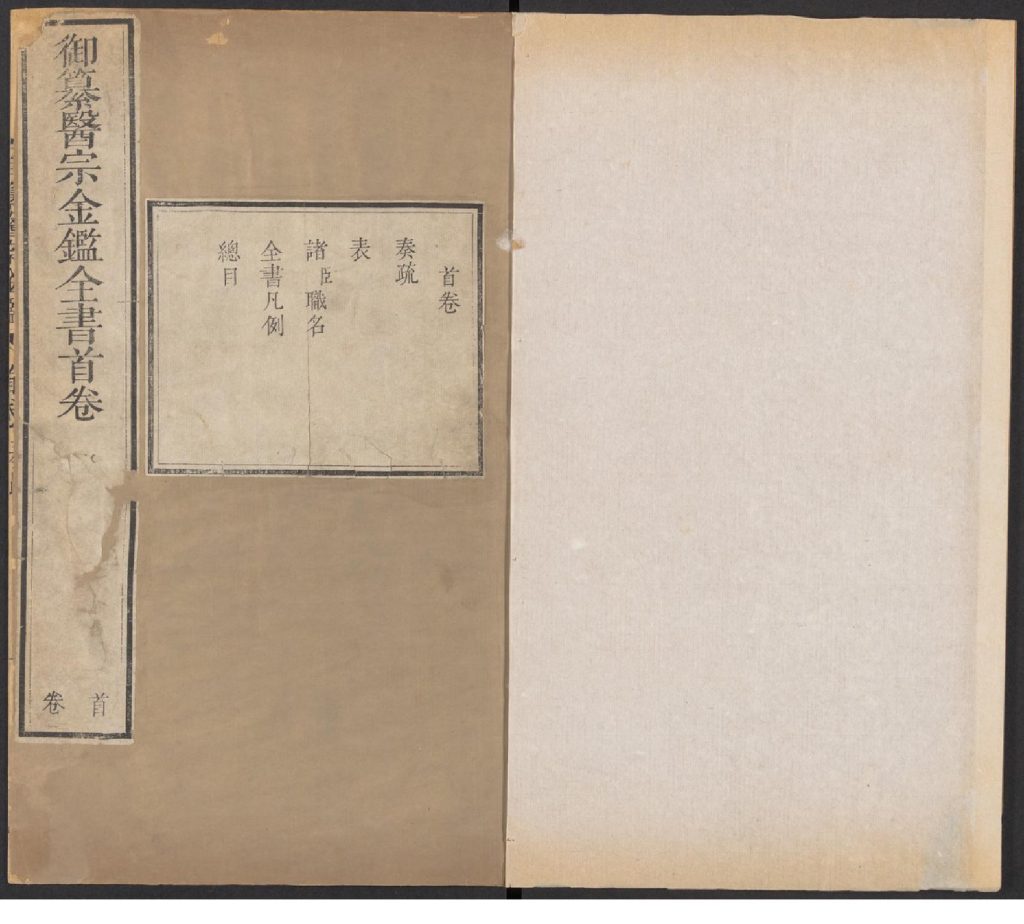 首卷
奏疏
表
諸臣職名
全書凡例
總目
御纂醫宗金鑑全書首卷
首
卷